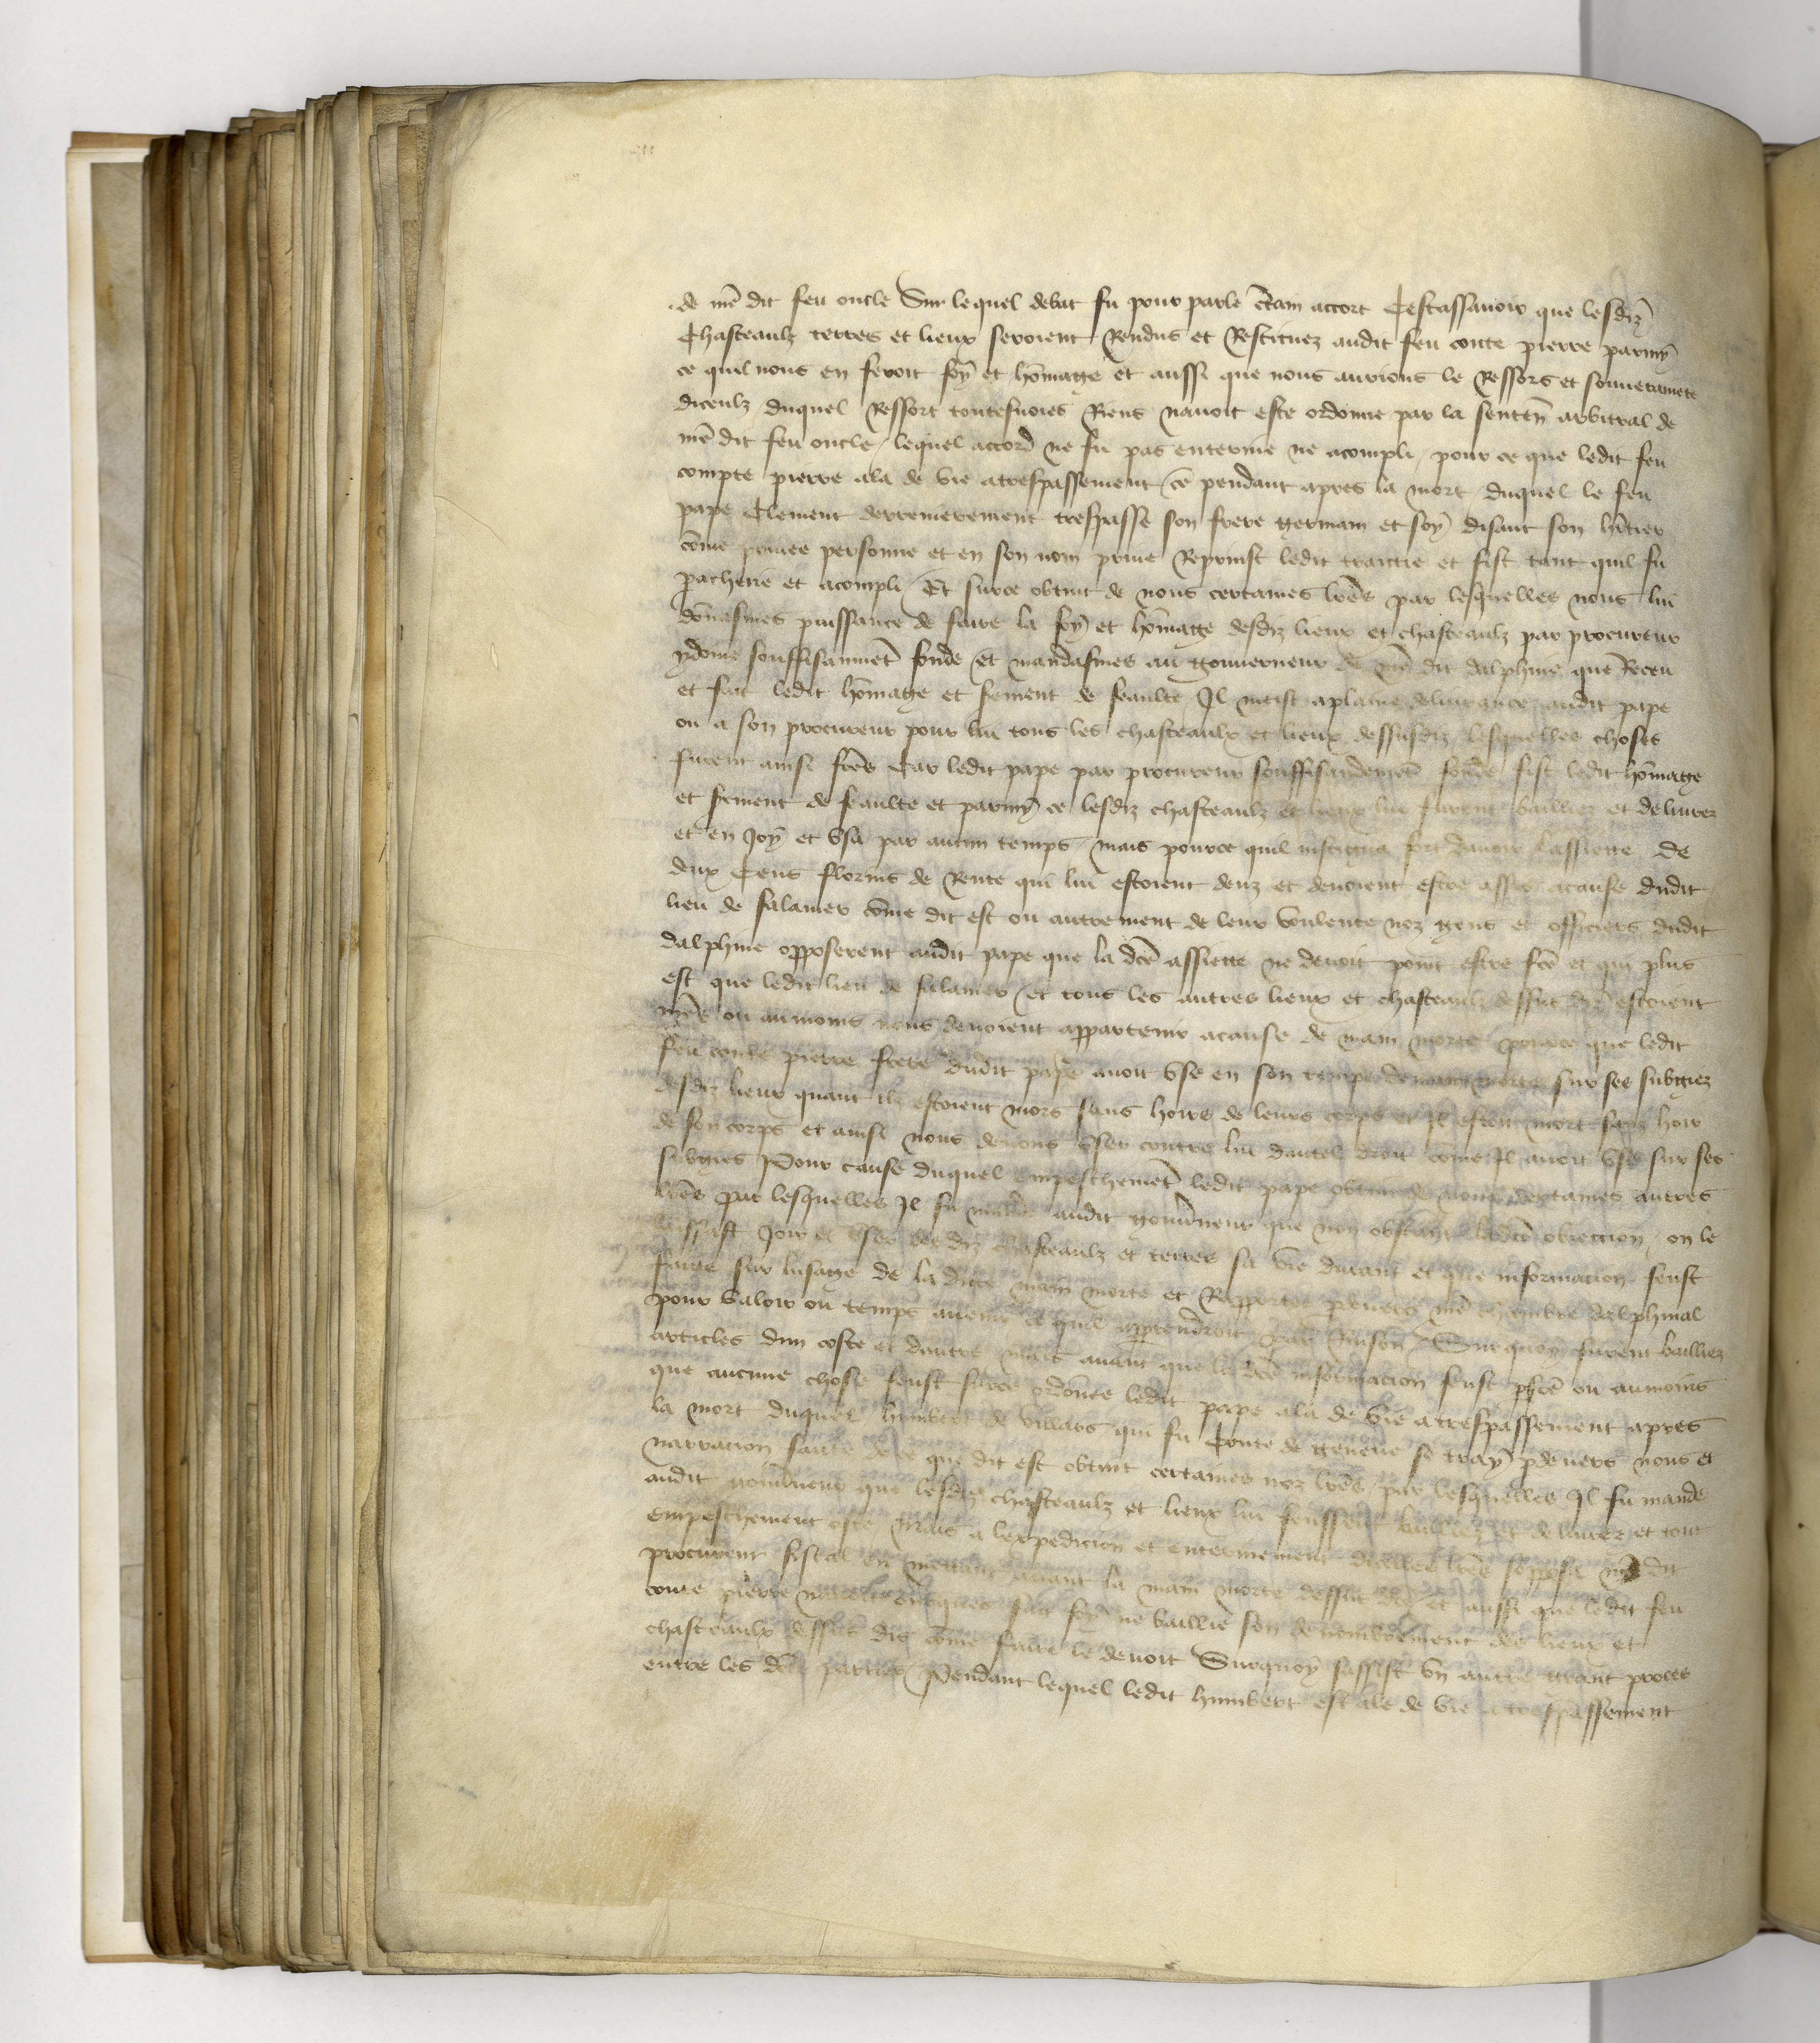 de nr̃e dit feu oncle Sur lequel debat fu pour parle c̃tain accort Cestassavoir que lesdiz
Chasteaulz terres et lieux seroient Rendus et Restituez audit feu conte pierre parmy
ce quil nous en feroit foy et hõmage et aussi que nous aurions le Ressors et souverainete
diceulz duquel Ressort toutesvoies Riens navoit este ordonne par la senteñ arbitral de
nr̃e dit feu oncle lequel accord ne fu pas enterine ne acompli pour ce que ledit feu
compte pierre ala de vie a trespassement ce pendant apres la mort duquel le feu
pape Clement derrenierement trespasse son frere germain et soy disant son hr̃tier
cõme privee personne et en son nom prive Reprinst ledit traictie et fist tant quil fu
parchevie et acompli Et surce obtint de nous certaines lr̃es par lesquelles nous lui
dõnasmes puissance de faire la foy et hõmage desdiz lieux et chasteaulz par procureur
ydoine souffisanmet̃ fonde et mandasmes au gouverneur de nr̃e dit dalphine que Receu
et fait ledit hõmage et s̃ement de feaulte Il meist a plaine delivrance audit pape
ou a son procureur pour lui tous les chasteaulx et lieux dessusdiz lesquelles choses
furent ainsi fc̃es Car ledit pape par procureur souffisandement fonde fist ledit hõmage
et s̃ement de feaulte et parmy ce lesdiz chasteaulz et lieux lui furent bailliez et delivrez
et en Joy et usa par aucun temps mais pource quil instigua fort davoir lassiette de
deux Cens florins de Rente qui lui estoient deuz et devoient estre assis acause dudit
lieu de falaver cõme dit est ou autrement de leur voulente noz gens et officiers dudit
dalphine opposerent audit pape que la dc̃e assiette ne devoit point estre fc̃e et qui plus
est que ledit lieu de falaver et tous les autres lieux et chasteaulz dessus diz estoient
nr̃es ou aumoins nous devoient appartenir acause de main morte pource que ledit
feu conte pierre frere dudit pape avoit use en son temps de main morte sur ses subgiez
desdiz lieux quant ilz estoient mors sans hoirs de leurs corps et Il estoit mort sans hoir
de son corps et ainsi nous devions user contre lui dautel droit cõme Il avoit use sur ses
subgies Pour cause duquel empeschemet̃ ledit pape obtint de nous certaines autres
lr̃es par lesquelles Il fu mande audit gouv̄neur que non obstant ladc̃e obiection on le
laissast Joir et user des diz chasteaulz et terres sa vie durant et que informacion feust
faite sur lusage de la dicte main morte et Rapportee pdevers nr̃e chambre delphinal
pour valoir ou temps avenir ce quil appartendroit par Raison Surquoy furent bailliez
articles dun coste et dautre mais avant que la dc̃e informacion feust pfc̃e ou aumoins
que aucune chose feust surce ordõnee ledit pape ala de vie a trespassement apres
la mort duquel humbert de villars qui fu Conte de geneve se tray pdevers nous et
narracion faite de ce que dit est obtint certaines noz lr̃es par lesquelles Il fu mande
audit gouv̄neur que lesdiz chasteaulz et lieux lui feussent bailliez et delivrez et tout
empeschement oste Mais a lexpedicion et enterinement dicelles lr̃es sopposa nr̃e dit
procureur fiscal en mettant avant la main morte dessus dc̃e et aussi que ledit feu
conte pierre navoit oncques fait foy ne baillie son denombrement des lieux et
chasteaulx dessus dis cõme faire le devoit Surquoy sassist un autre grant proces
entre les dc̃es parties Pendant lequel ledit humbert est ale de vie a trespassement